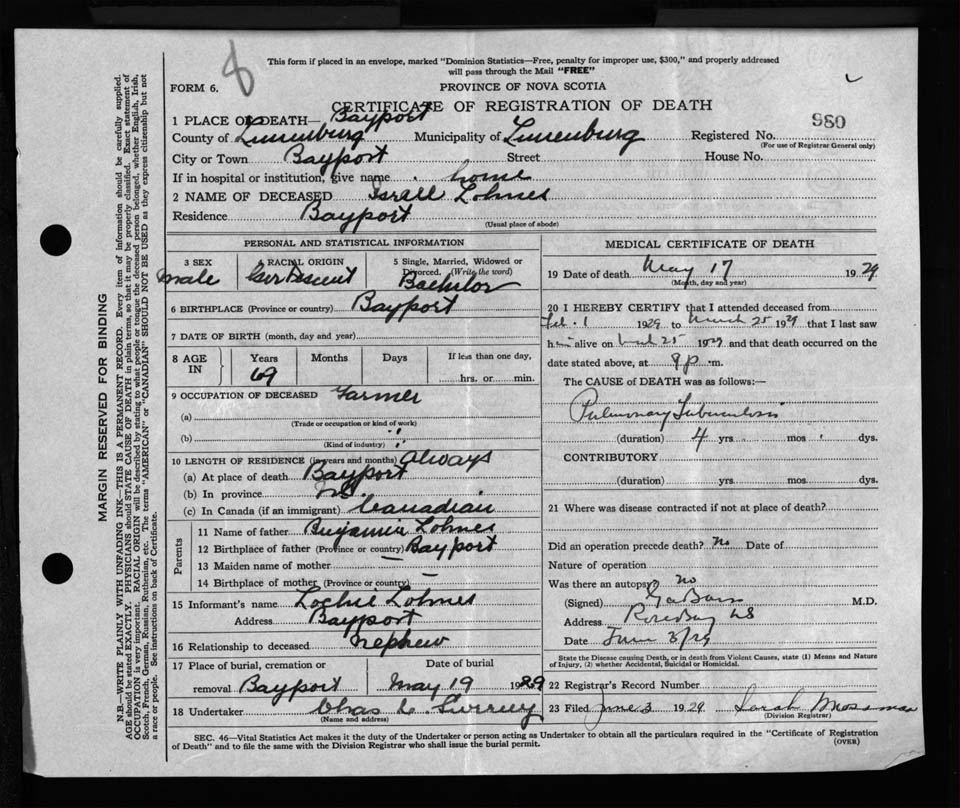 8
This form if placed in an envelope, marked "Dominion Statistics—Free, penalty for improper use, $300," and properly addressed
will pass through the Mail "FREE"
FORM 6.
PROVINCE OF NOVA SCOTIA
CERTIFICATE OF REGISTRATION OF DEATH
1 PLACE OF DEATH— Bayport
980
County of Lunenburg Municipality of Lunenburg Registered No.
(For use of Registrar General only)
City or Town Bayport Street House No.
If in hospital or institution, give name home
2 NAME OF DECEASED Israel Lohnes
Residence Bayport
(Usual place of abode)
PERSONAL AND STATISTICAL INFORMATION
3 SEX male
4 RACIAL ORIGIN Ger Descent
5 Single, Married, Widowed or
Divorced. (Write the word)
Bachelor
6 BIRTHPLACE (Province or country) Bayport
7 DATE OF BIRTH (month, day and year)
8 AGE IN Years Months Days If less than one day,
69 hrs. or min.
9 OCCUPATION OF DECEASED Farmer
(a)
(Trade or occupation or kind of work)
(b)
(Kind of industry)
10 LENGTH OF RESIDENCE (in years and months) always
(a) At place of death Bayport
(b) In province N.S.
(c) In Canada (if an immigrant) Canadian
Parents
11 Name of father Benjamin Lohnes
12 Birthplace of father (Province or country) Bayport
13 Maiden name of mother —
14 Birthplace of mother (Province or country) —
15 Informant's name Lohnes
Address Bayport
16 Relationship to deceased nephew
17 Place of burial, cremation or Date of burial
removal Bayport May 19 1929
18 Undertaker Chas L.
(Name and address)
MEDICAL CERTIFICATE OF DEATH
19 Date of death May 17 1929
(Month, day and year)
20 I HEREBY CERTIFY that I attended deceased from
Feb. 1 1929 to March 25 1929 that I last saw
him alive on March 25 1929 and that death occurred on the
date stated above, at 9 p.m.
The CAUSE OF DEATH was as follows:—
Pulmonary Tuberculosis
(duration) 4 yrs. mos. dys.
CONTRIBUTORY
(duration) yrs. mos. dys.
21 Where was disease contracted if not at place of death?
Did an operation precede death? no Date of
Nature of operation
Was there an autopsy? no
(Signed) M.D.
Address Rose Bay NS
Date June 3/29
State the Disease causing Death, or in death from Violent Causes, state (1) Means and Nature
of Injury, (2) whether Accidental, Suicidal or Homicidal.
22 Registrar's Record Number
23 Filed June 3 1929 Sarah Mossman
(Division Registrar)
SEC. 46—Vital Statistics Act makes it the duty of the Undertaker or person acting as Undertaker to obtain all the particulars required in the "Certificate of Registration
of Death" and to file the same with the Division Registrar who shall issue the burial permit.
(OVER)
MARGIN RESERVED FOR BINDING
N.B.—WRITE PLAINLY WITH UNFADING INK—THIS IS A PERMANENT RECORD. Every item of information should be carefully supplied.
AGE should be stated EXACTLY. PHYSICIANS should STATE CAUSE OF DEATH in plain terms, so that it may be properly classified. Exact statement of
OCCUPATION is very important. RACIAL ORIGIN will be described by stating to what people or tongue the deceased person belonged, whether English, Irish,
Scotch, French, German, Russian, Ruthenian, etc. The terms "AMERICAN" or "CANADIAN" SHOULD NOT BE USED as they express citizenship but not
a race or people. See instructions on back of Certificate.